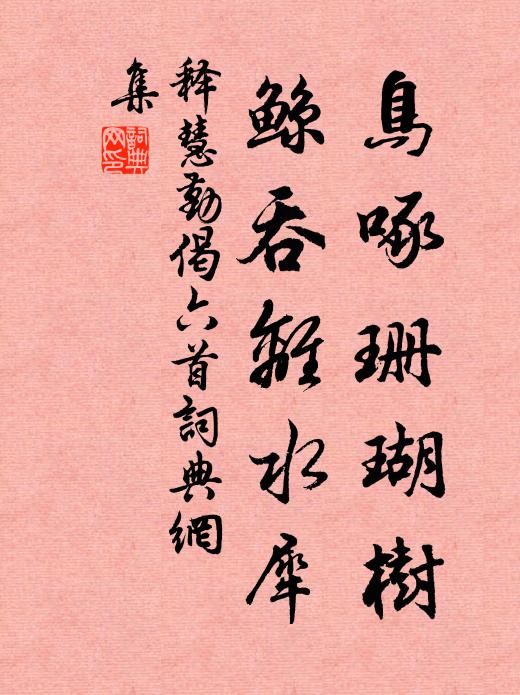 鳥啄珊瑚樹
鲸吞離水犀
释慧勤偈六首詞典網
集
詞典網印